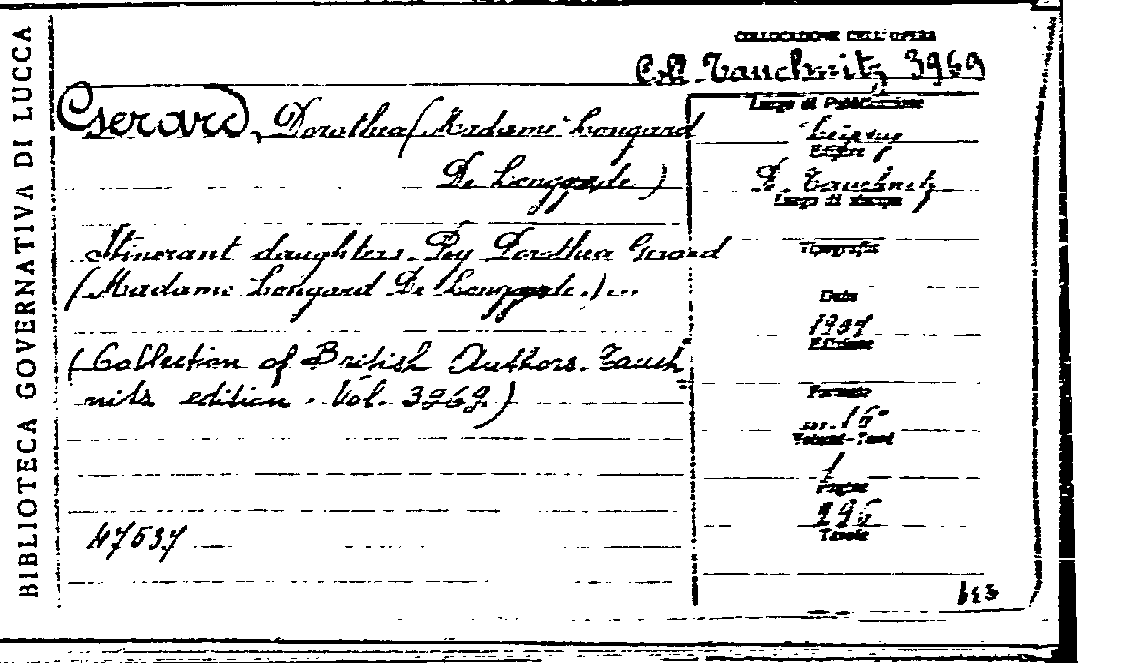 BIBLIOTECA GOVERNATIVA DI LUCCA
COLLOCAZIONE DELL'OPERA
Coll. Tauchnitz 3969
Gerard, Dorothea (Madame Longard
De Longgarde)
Itinerant daughters. By Dorothea Gerard
(Madame Longard De Longgarde.)...
(Collection of British Authors. Tauch
nitz edition. Vol. 3969.)
47537
Luogo di Pubblicazione
Leipzig
Editore
B. Tauchnitz
Luogo di stampa
Tipografia
Data
1907
Edizione
Formato
in.16°
Volumi-Tomi
1
Pagine
296
Tavole